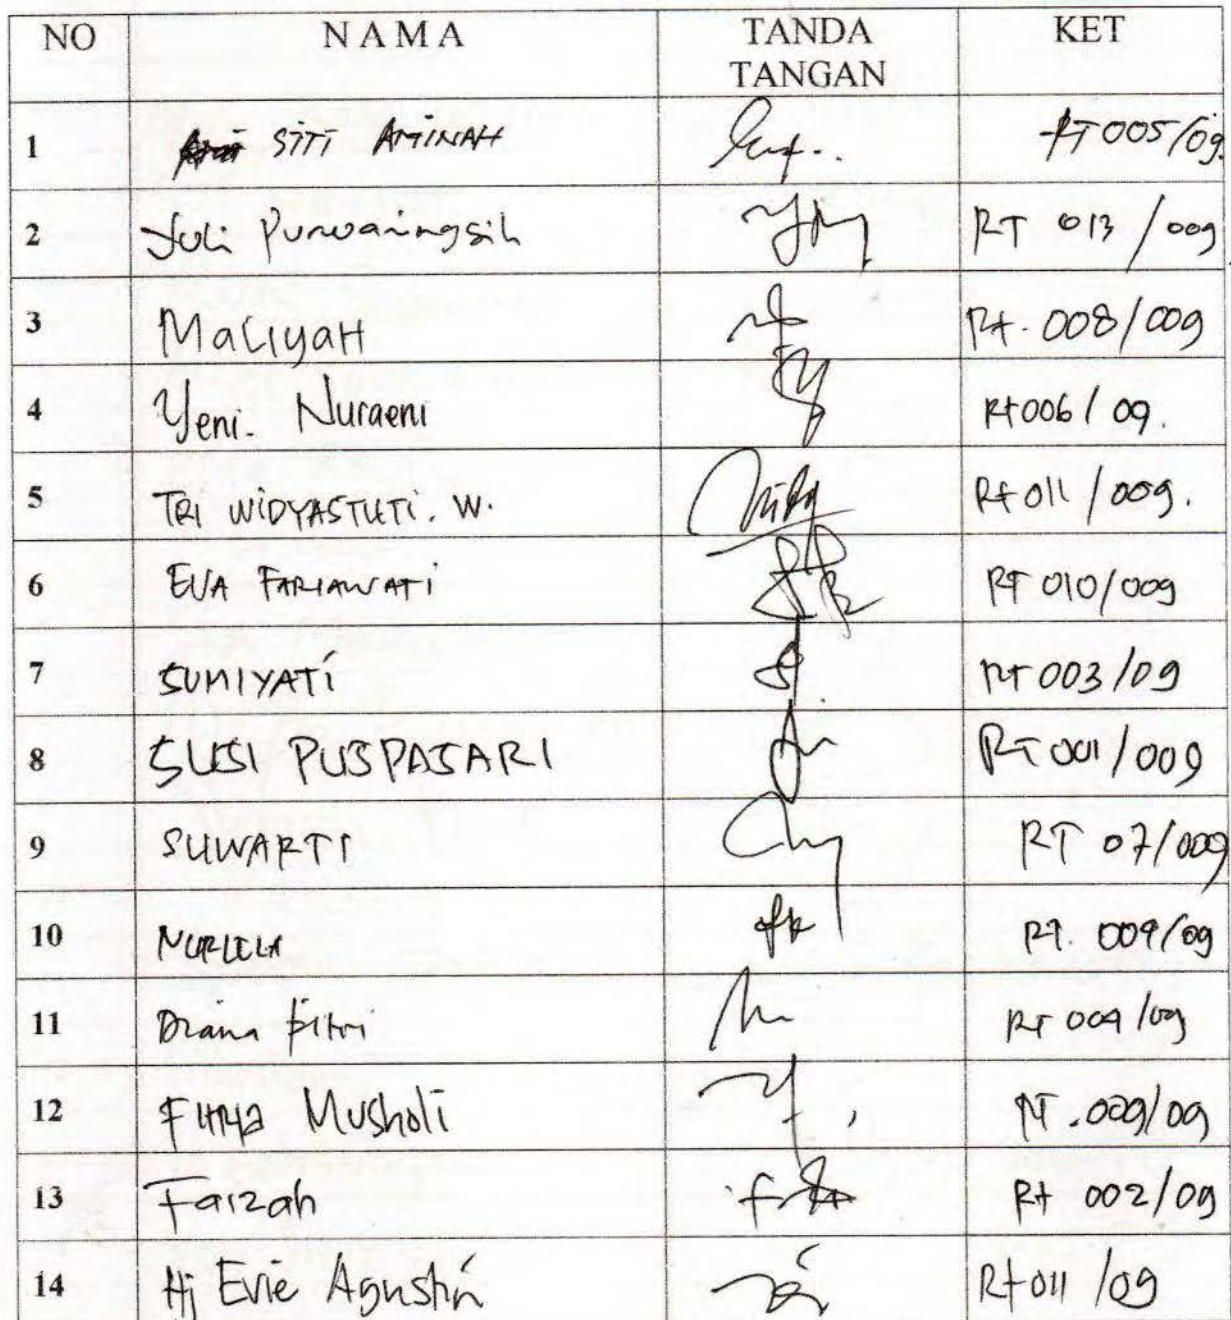 NO NAMA TANDA TANGAN KET
1 SITI AMINAH RT 005/09
2 Yuli Purwaningsih RT 013 / 009
3 MaliyaH Rt. 008/009
4 Yeni. Nuraeni Rt 006 / 09.
5 TRI WIDYASTUTI. W. Rt 011 / 009.
6 EVA FARIAWATI RT 010/009
7 SUMIYATI RT 003/09
8 SUSI PUSPASARI RT 001/009
9 SUWARTI RT 07/009
10 NURLELA RT. 009/09
11 Diana Fitri RT 004/09
12 Musholi RT. /09
13 Faizah Rt 002/09
14 Hj Evie Agustin Rt 011 /09